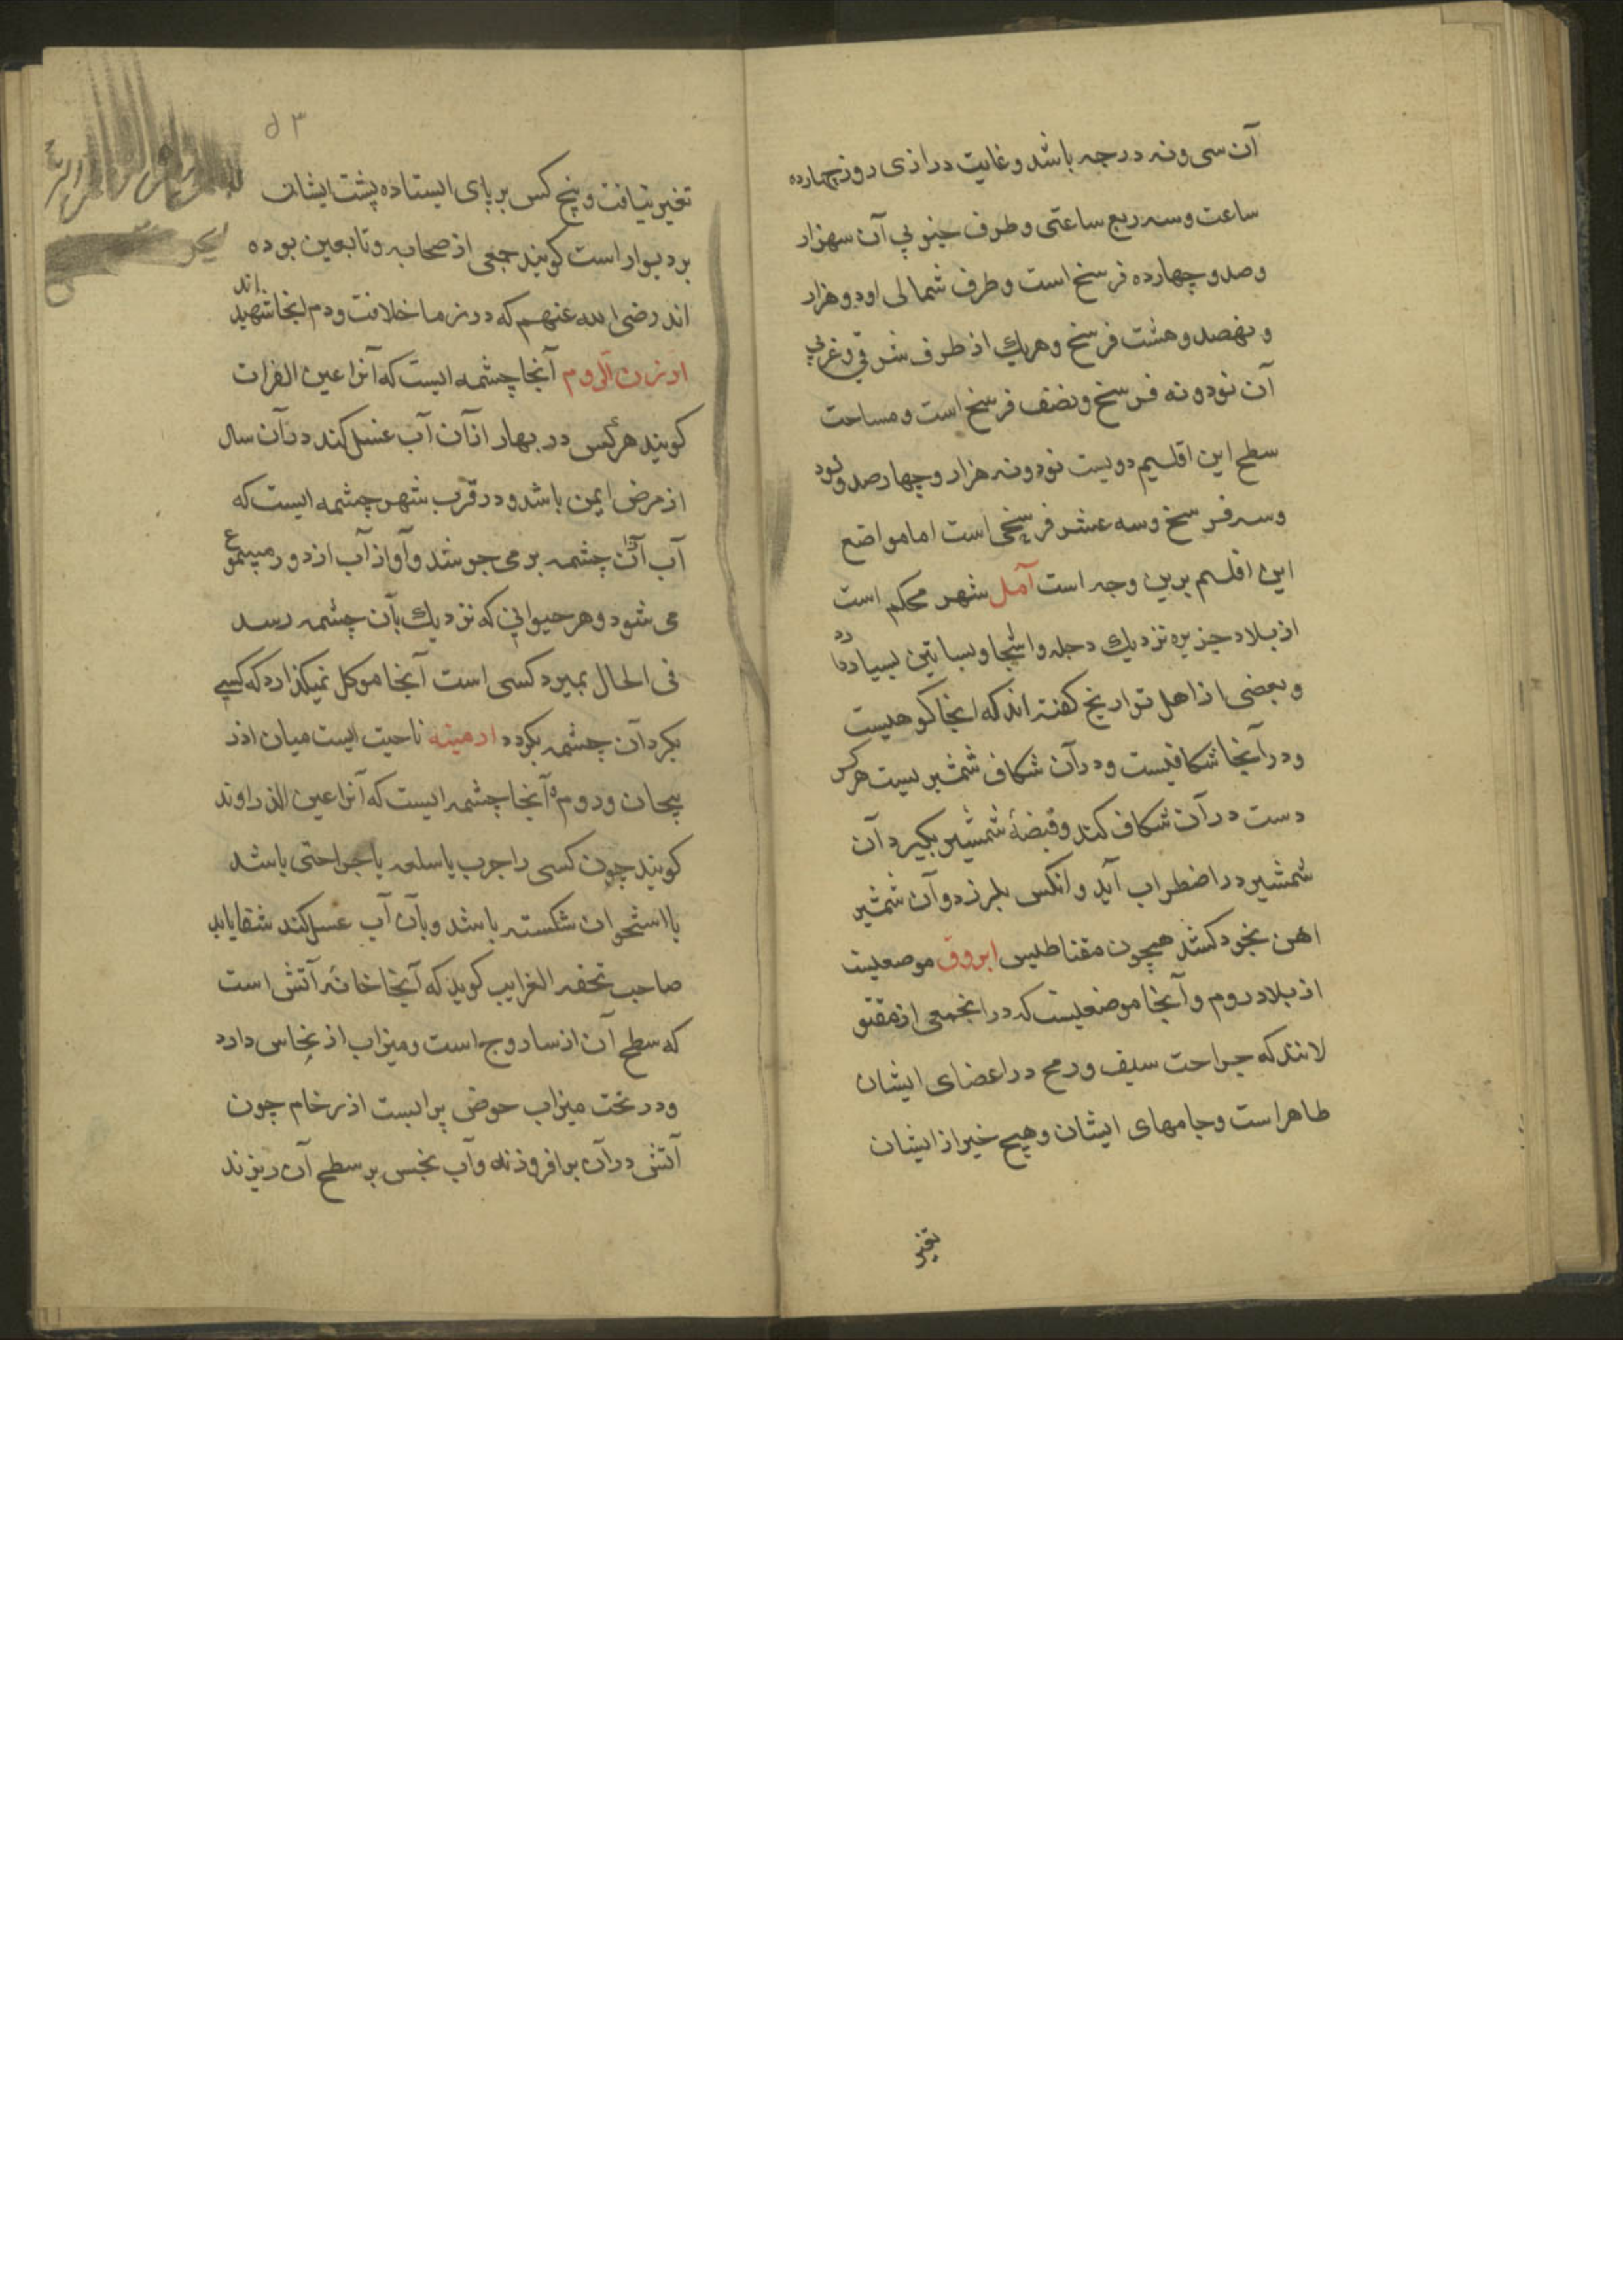 آن سی و نه درجه باشد و غایت درازی روز چهارده
ساعت و سه ربع ساعتی و طرف جنوبی آن سهزار
و صد و چهارده فرسخ است و طرف شمالی او دو هزار
و نهصد و هشت فرسخ و هریك از طرف شرقی و غربی
آن نود و نه فرسخ و نصف فرسخ است و مساحت
سطح این اقلیم دویست نود و نه هزار و چهارصد و نود
و سه فرسخ و سه عشر فرسخی است اما مواضع
این اقلیم برین وجه است آمل شهر محکم است
از بلاد جزیره نزدیك دجله و اشجار و بساتین بسیار دارد
و بعضی از اهل تواریخ کفته اند که اینجا کوهیست
و در آنجا شکافیست و در آن شکاف شمشیریست هرکس
دست در آن شکاف کند و قبضهٔ شمشیر بکیرد آن
شمشیر در اضطراب آید و انکس بلرزد و آن شمشیر
اهن بخود کشد هیچون مقناطیس ابروق موضعیست
از بلاد روم و آنجا موضعیست که در انجمعی از مقتو
لانند که جراحت سیف و رمح در اعضای ایشان
ظاهر است و جامهای ایشان و هیچ خیر از ایشان
تغیر
۵۳
تغیر نیافت و پنج کس بر پای ایستاده پشت ایشان
بر دیوار است کویند جمعی از صحابه و تابعین بوده
اند رضی الله عنهم که در زما خلافت و دم اینجا شهید اند
ارزن الروم آنجا چشمه ایست که آنرا عین الفرات
کویند هرکس در بهار از آن آب غسل کند در آن سال
از مرض ایمن باشد و در قرب شهر چشمه ایست که
آب از آن چشمه بر می جوشد و آواز آب از دور
می شود و هر حیوانی که نزدیك بآن چشمه رسد
فی الحال بمیرد کسی است آنجا موکل نمیکذارد که کسی
بکرد آن چشمه بکردد ارمنیه ناحیت ایست میان اذر
بیجان و روم و آنجا چشمه ایست که آنرا عین الذراوند
کویند چون کسی را جرب یا سلعه یا جراحتی باشد
یا استخوان شکسته باشد و بآن آب غسل کند شفا یابد
صاحب تحفه الغرایب کوید که آنجا خانه آتش است
که سطح آن از ساروج است و میزاب از نحاس دارد
و در تخت میزاب حوض پر ابست از رخام چون
آتش در آن برافروزند و آب نجس بر سطح آن ریزند